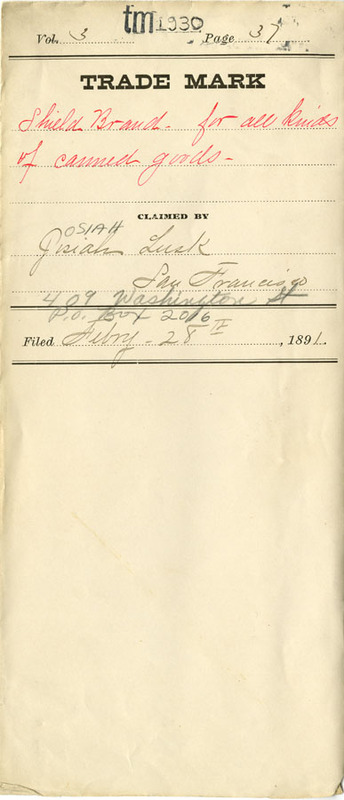 tm1930
Vol. 3 Page 37
TRADE MARK
Shield Brand - for all kinds
of canned goods -
CLAIMED BY
OSIAH
Josiah Lusk
San Francisco
409 Washington St
P.O. Box 2016
Filed Febry - 28 , 1891.